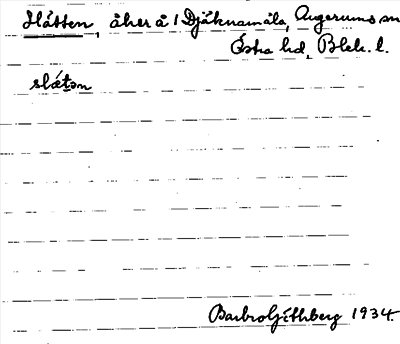 Slätten, åker å 1 Djäknamåla, Augerums sn
Östra hd, Blek. l.
slɛ́tən
Barbro Göthberg 1934.